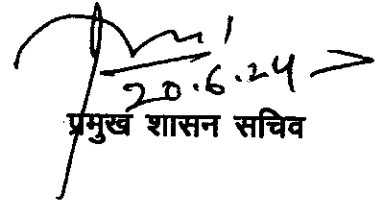 20.6.24
प्रमुख शासन सचिव